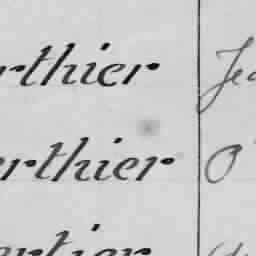 rthier Je
erthier O'
ertier